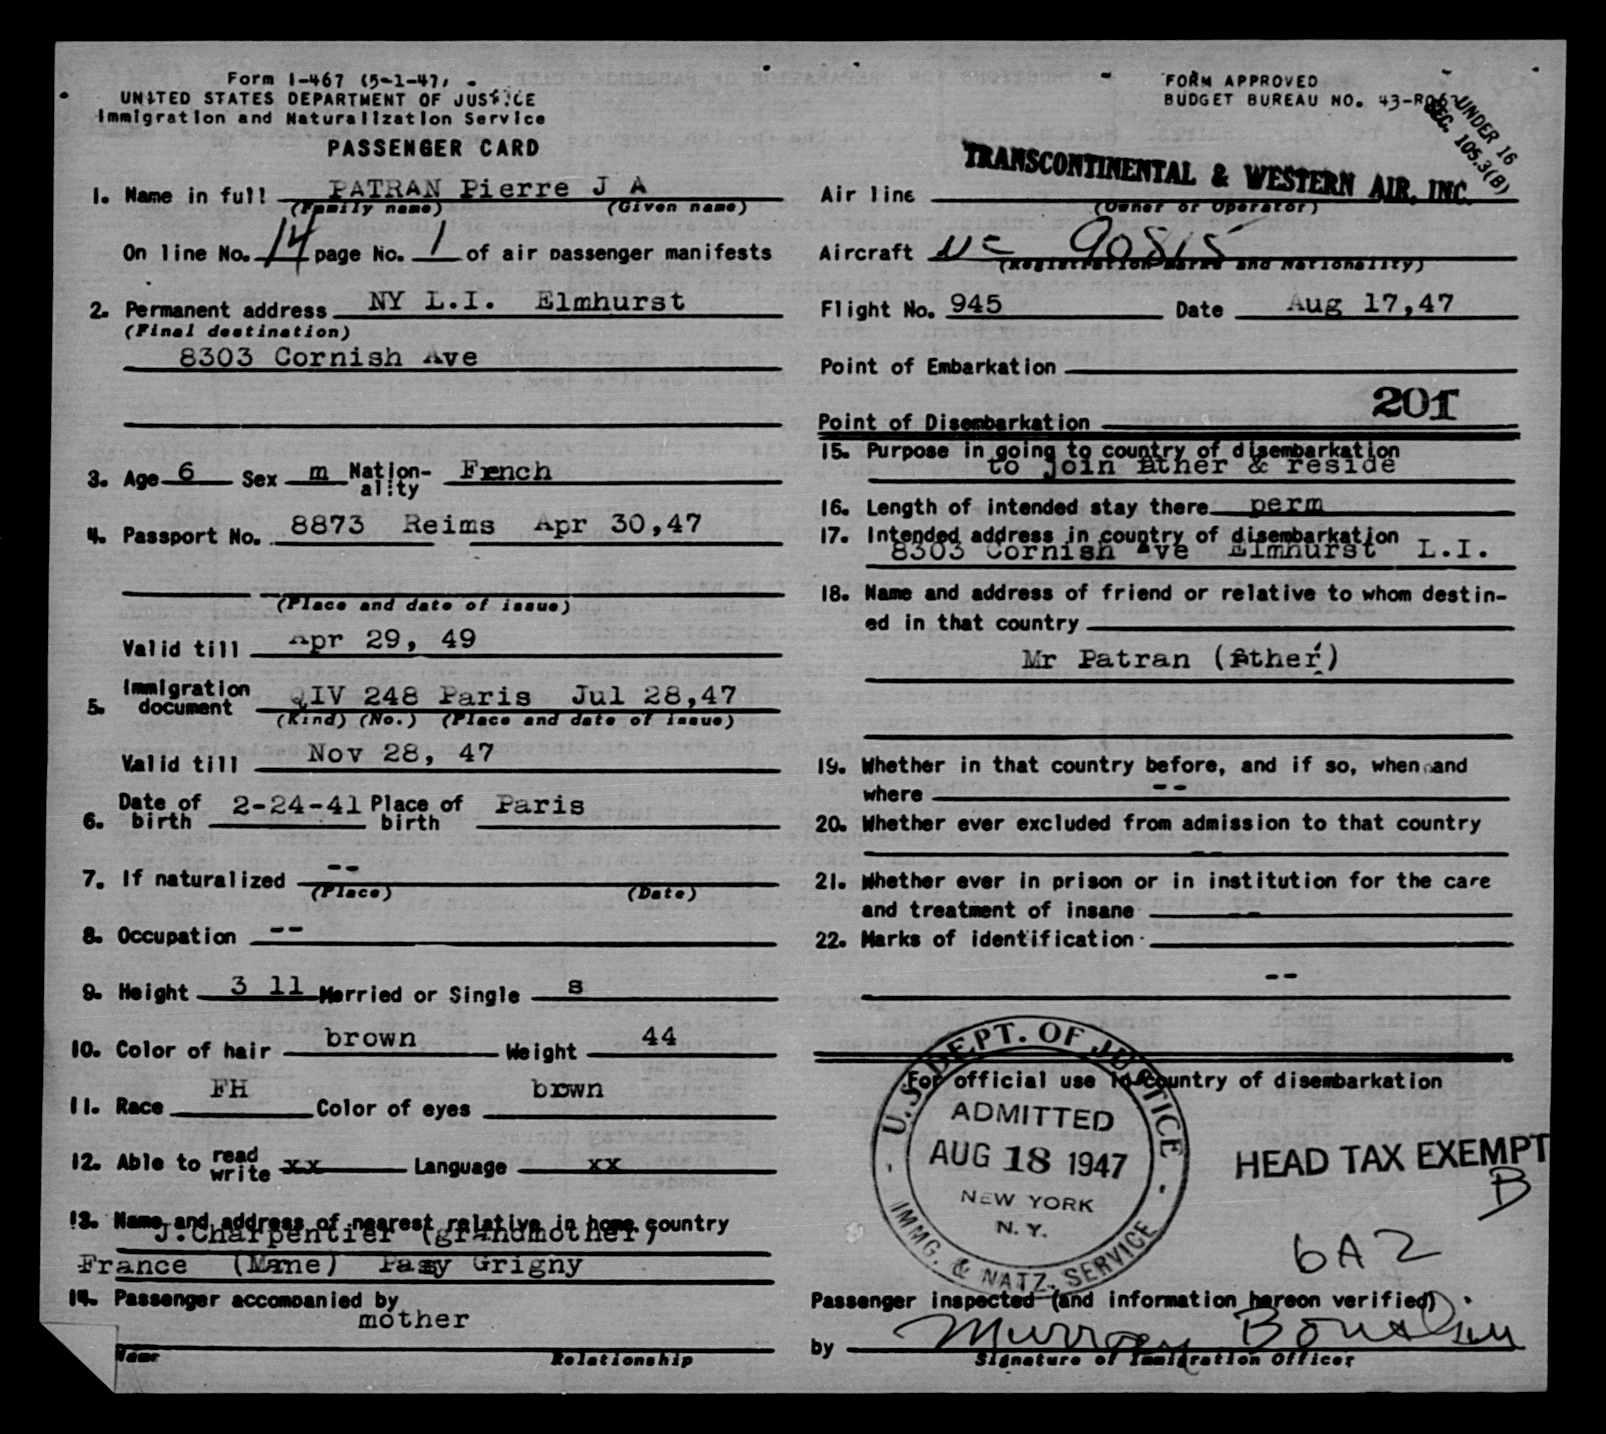 Form I-467 (5-1-47)
UNITED STATES DEPARTMENT OF JUSTICE
Immigration and Naturalization Service
PASSENGER CARD
1. Name in full PATRAN Pierre J A
(Family name) (Given name)
On line No. 14 page No. 1 of air passenger manifests
2. Permanent address NY L.I. Elmhurst
(Final destination)
8303 Cornish Ave
3. Age 6 Sex m Nation-ality French
4. Passport No. 8873 Reims Apr 30,47
(Place and date of issue)
Valid till Apr 29, 49
5. Immigration document QIV 248 Paris Jul 28,47
(Kind) (No.) (Place and date of issue)
Valid till Nov 28, 47
6. Date of birth 2-24-41 Place of birth Paris
7. If naturalized --
(Place) (Date)
8. Occupation --
9. Height 3 11 Married or Single s
10. Color of hair brown Weight 44
11. Race FH Color of eyes brown
12. Able to read write xx Language xx
13. Name and address of nearest relative in home country
J.Charpentier (grandmother)
France (Marne) Passy Grigny
14. Passenger accompanied by
mother
Name Relationship
FORM APPROVED
BUDGET BUREAU NO. 43-R062
UNDER 16
SEC. 105.3(B)
Air line TRANSCONTINENTAL & WESTERN AIR, INC.
(Owner or Operator)
Aircraft NC 90815
(Registration marks and Nationality)
Flight No. 945 Date Aug 17,47
Point of Embarkation
201
Point of Disembarkation
15. Purpose in going to country of disembarkation
to join father & reside
16. Length of intended stay there perm
17. Intended address in country of disembarkation
8303 Cornish Ave Elmhurst L.I.
18. Name and address of friend or relative to whom destin-
ed in that country
Mr Patran (father)
19. Whether in that country before, and if so, when and
where --
20. Whether ever excluded from admission to that country
--
21. Whether ever in prison or in institution for the care
and treatment of insane --
22. Marks of identification
--
For official use in country of disembarkation
U.S. DEPT. OF JUSTICE
ADMITTED
AUG 18 1947
NEW YORK
N. Y.
IMMG. & NATZ. SERVICE
HEAD TAX EXEMPT
B
6A2
Passenger inspected (and information hereon verified)
by Murray
Signature of Immigration Officer